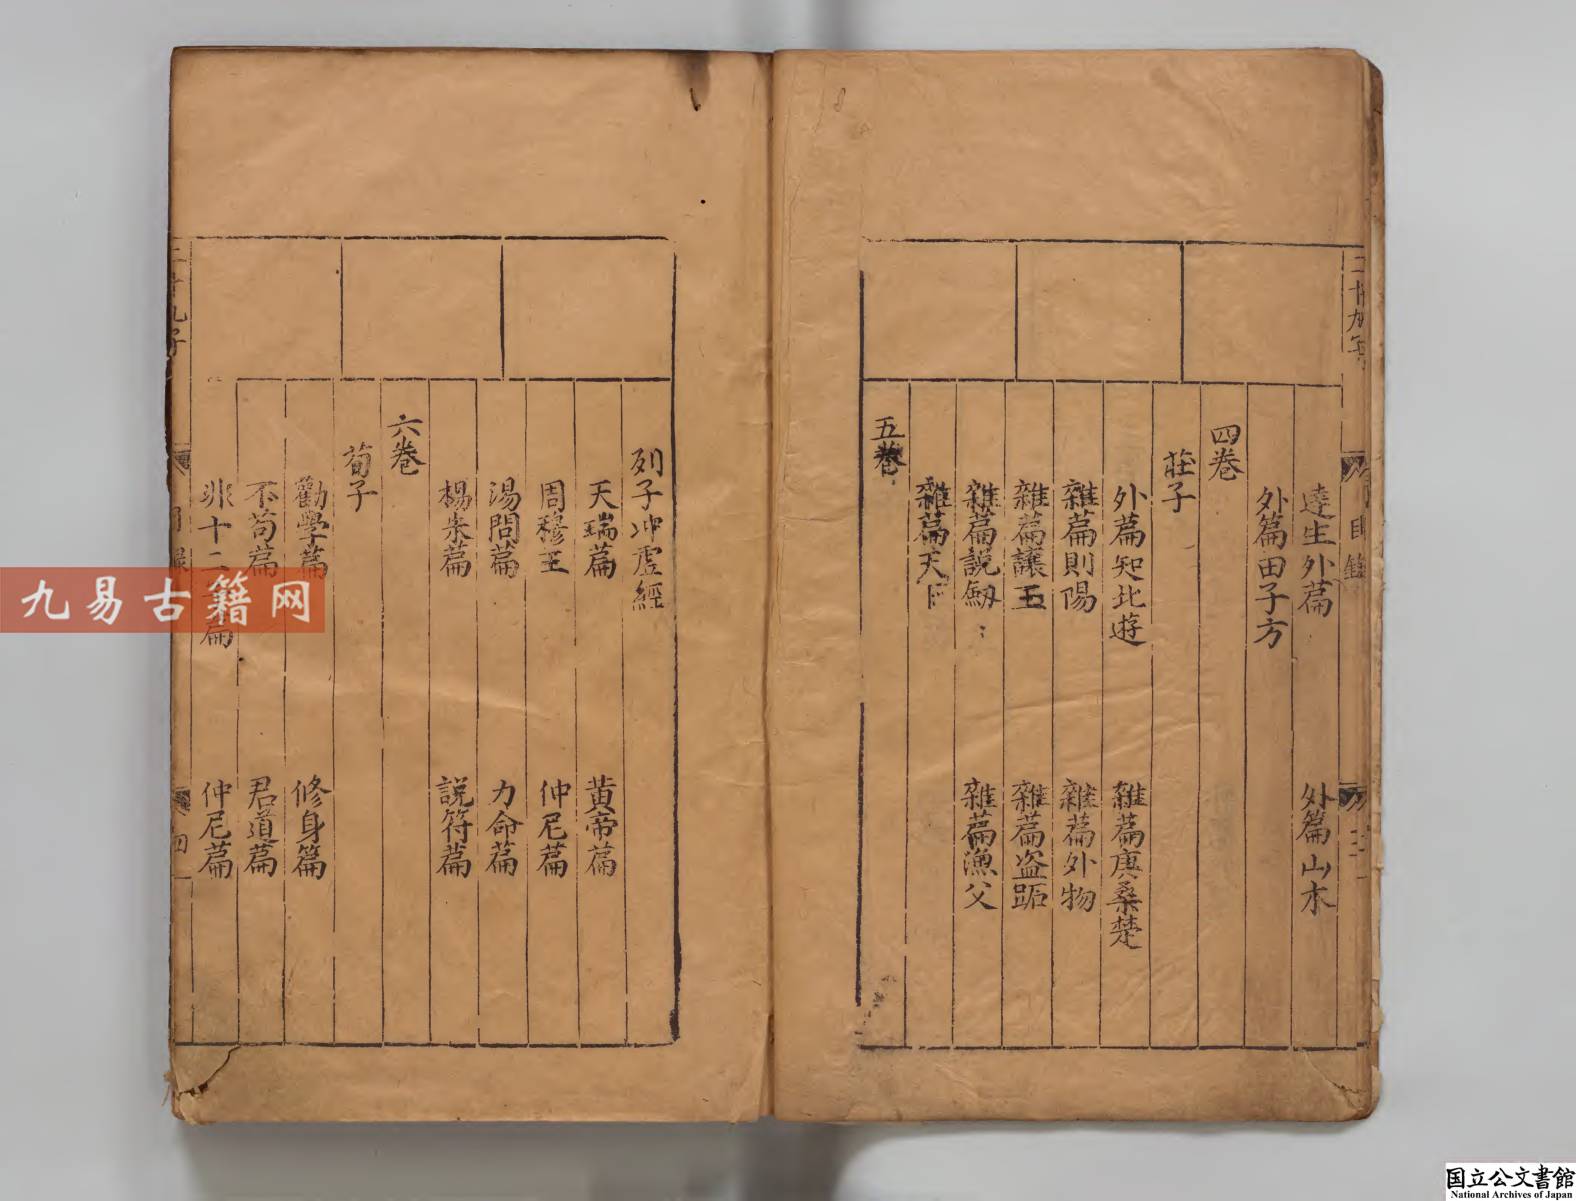 二十九子
目錄
三
達生外篇 外篇山木
外篇田子方
四卷
莊子
外篇知北遊 雜篇庚桑楚
雜篇則陽 雜篇外物
雜篇讓王 雜篇盗跖
雜篇説劒 雜篇漁父
雜篇天下
五卷
列子冲虛經
天瑞篇 黃帝篇
周穆王 仲尼篇
湯問篇 力命篇
楊朱篇 説符篇
六卷
荀子
勸學篇 修身篇
不茍篇 君道篇
非十二子篇 仲尼篇
二十九子
目錄
四
九易古籍网
国立公文書館
National Archives of Japan